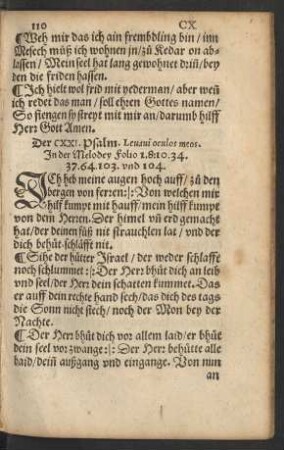 110 CX
¶ Weh mir das ich ain frembdling bin / inn
Mesech müß ich wohnen jn / zů Kedar on ab-
lassen / Mein seel hat lang gewohnet drin / bey
den die friden hassen.
¶ Ich hielt wol frid mit yederman / aber weñ
ich redet das man / soll ehren Gottes namen /
So fiengen sy streyt mit mir an / darumb hilff
Herr Gott Amen.
Der CXXI. Psalm. Leuaui oculos meos.
In der Melodey Folio 1. 8. 10. 34.
37. 64. 103. vnd 104.
ICh heb meine augen hoch auff / zů den
bergen von ferren :|: Von welchen mir
hilf kumpt mit hauff / mein hilff kumpt
von dem Herren. Der himel vñ erd gemacht
hat / der deinen fůß nit strauchlen lat / vnd der
dich behüt schläfft nit.
¶ Sihe der hütter Israel / der weder schlaffe
noch schlummet :|: Der Herr bhüt dich an leib
vnd seel / der Herr dein schatten kummet. Das
er auff dein rechte hand sech / das dich des tags
die Sonn nicht stech / noch der Mon bey der
Nachte.
¶ Der Herr bhüt dich vor allem laid / er bhüt
dein seel vor zwange :|: Der Herr behütte alle
baid / deiñ außgang vnd eingange. Von nun
an